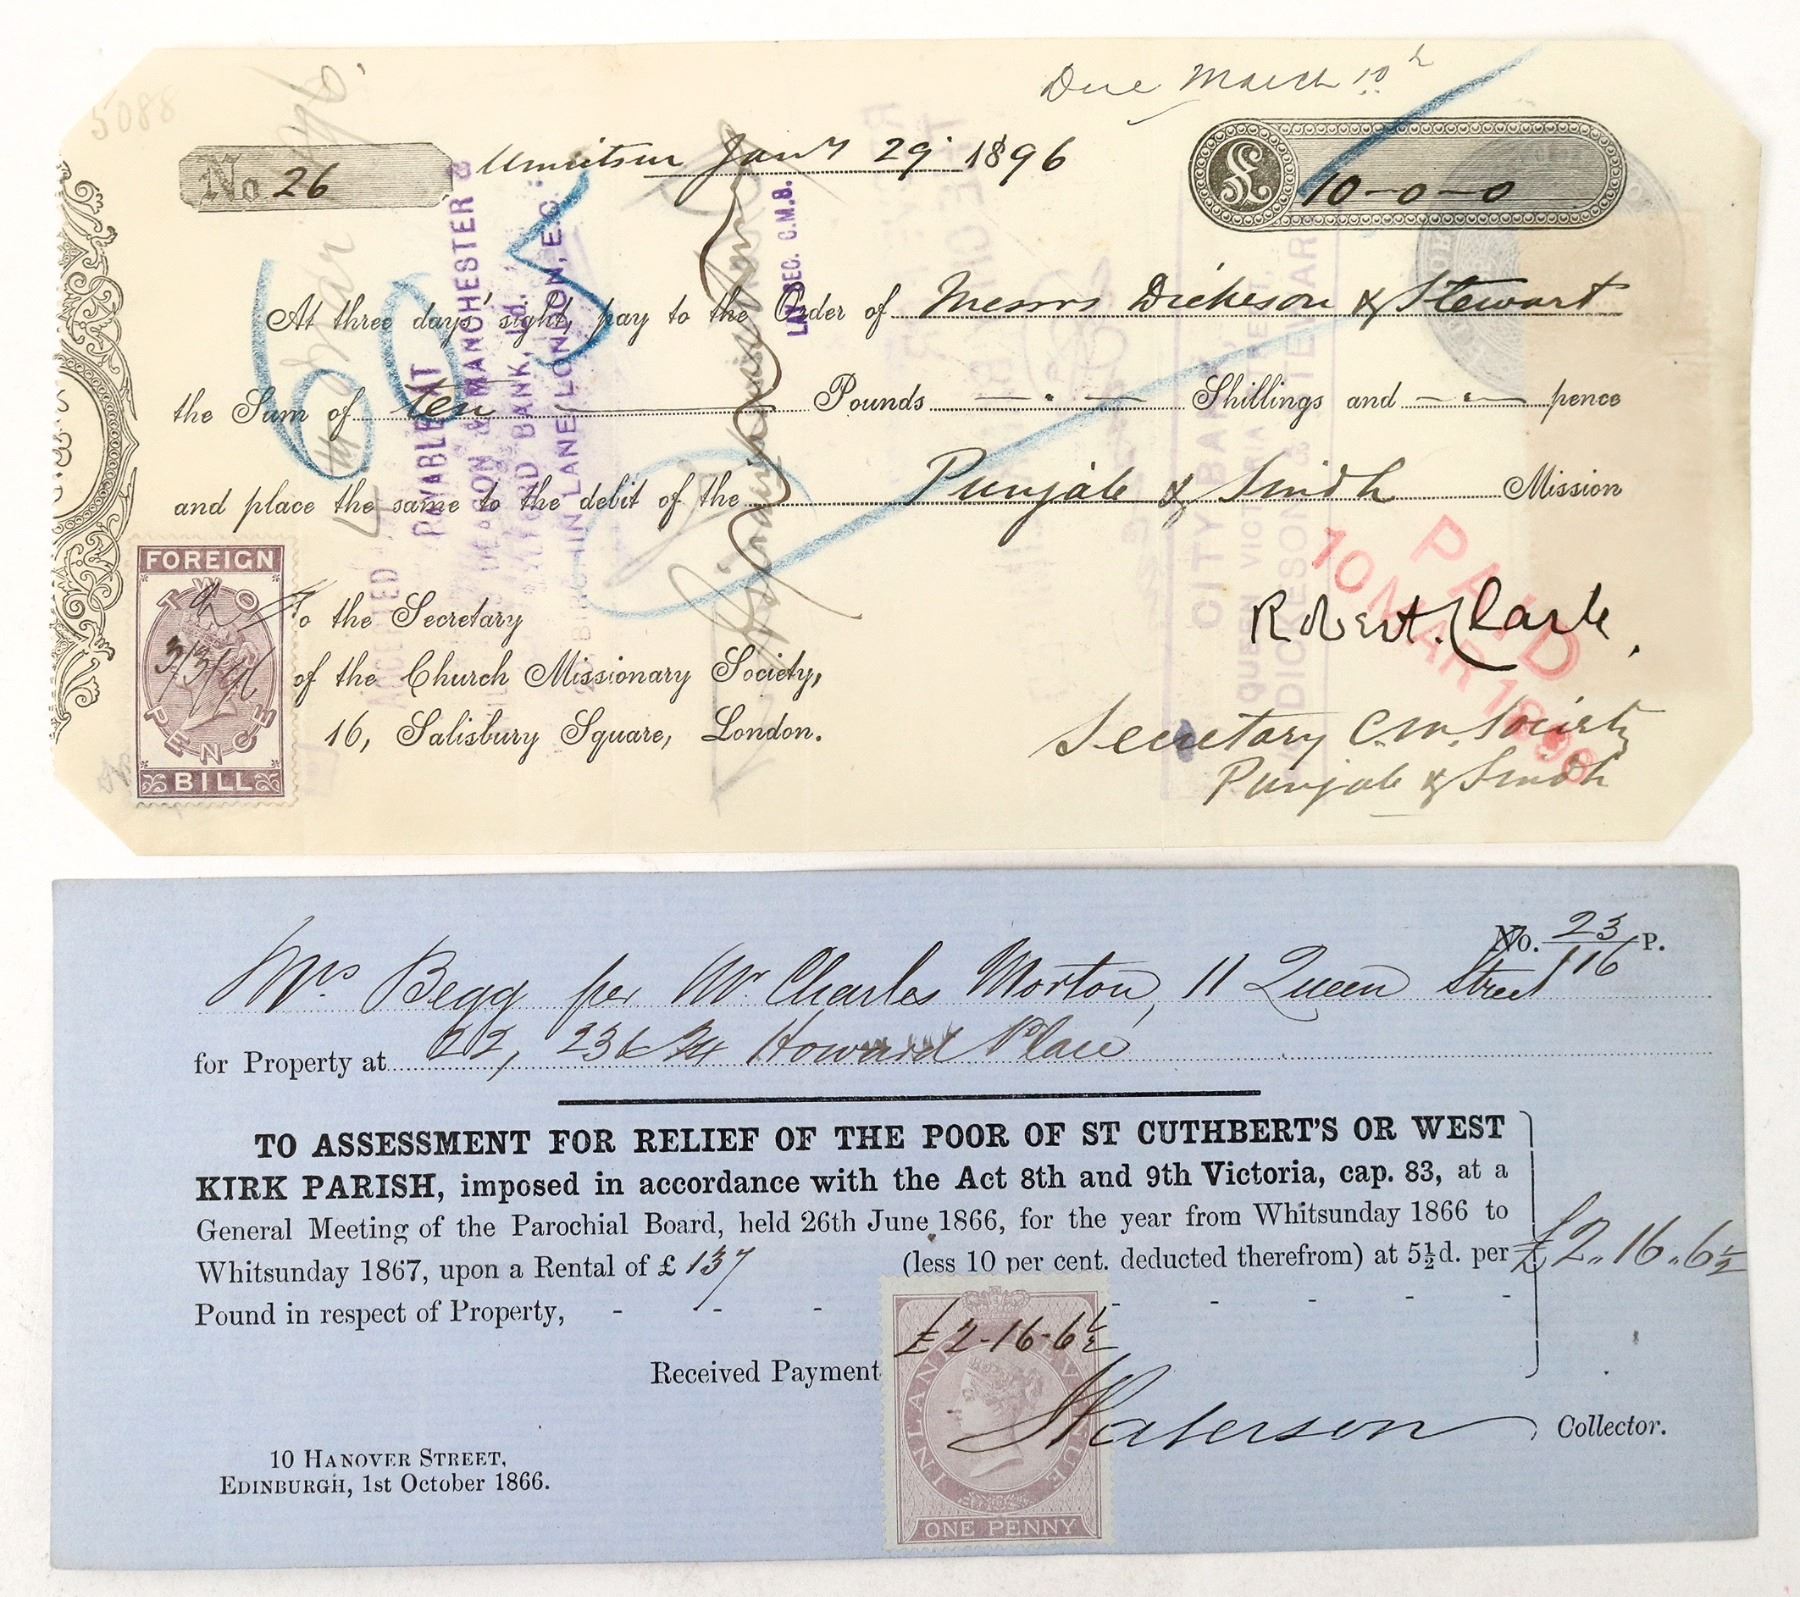 5088
Due March 10th
No 26
Umritsur Jany 29 1896
£ 10-0-0
At three days' sight, pay to the Order of Messrs Dickeson & Stewart
the Sum of ten Pounds Shillings and pence
and place the same to the debit of the Punjab & Sindh Mission
FOREIGN
TWO PENCE
BILL
3/3/96
To the Secretary
of the Church Missionary Society,
16, Salisbury Square, London.
Robert Clark.
Secretary C.M. Society
Punjab & Sindh
603
ACCEPTED PAYABLE AT
MANCHESTER &
BANK, Ld.
LANE, LONDON, E.C.
LAY SEC. C.M.S.
CITY BANK,
QUEEN VICTORIA STREET,
DICKESON & STEWART
PAID
10 MAR 1896
No. 23/116 P.
Mrs. Begg per Mr. Charles Morton, 11 Queen Street
for Property at 22, 23 & 24 Howard Place
TO ASSESSMENT FOR RELIEF OF THE POOR OF ST CUTHBERT'S OR WEST
KIRK PARISH, imposed in accordance with the Act 8th and 9th Victoria, cap. 83, at a
General Meeting of the Parochial Board, held 26th June 1866, for the year from Whitsunday 1866 to
Whitsunday 1867, upon a Rental of £ 137 (less 10 per cent. deducted therefrom) at 5½d. per
Pound in respect of Property, - - - - - - - -
£2.. 16.. 6½
Received Payment
£2-16-6½
INLAND REVENUE
ONE PENNY
Paterson
Collector.
10 HANOVER STREET,
EDINBURGH, 1st October 1866.